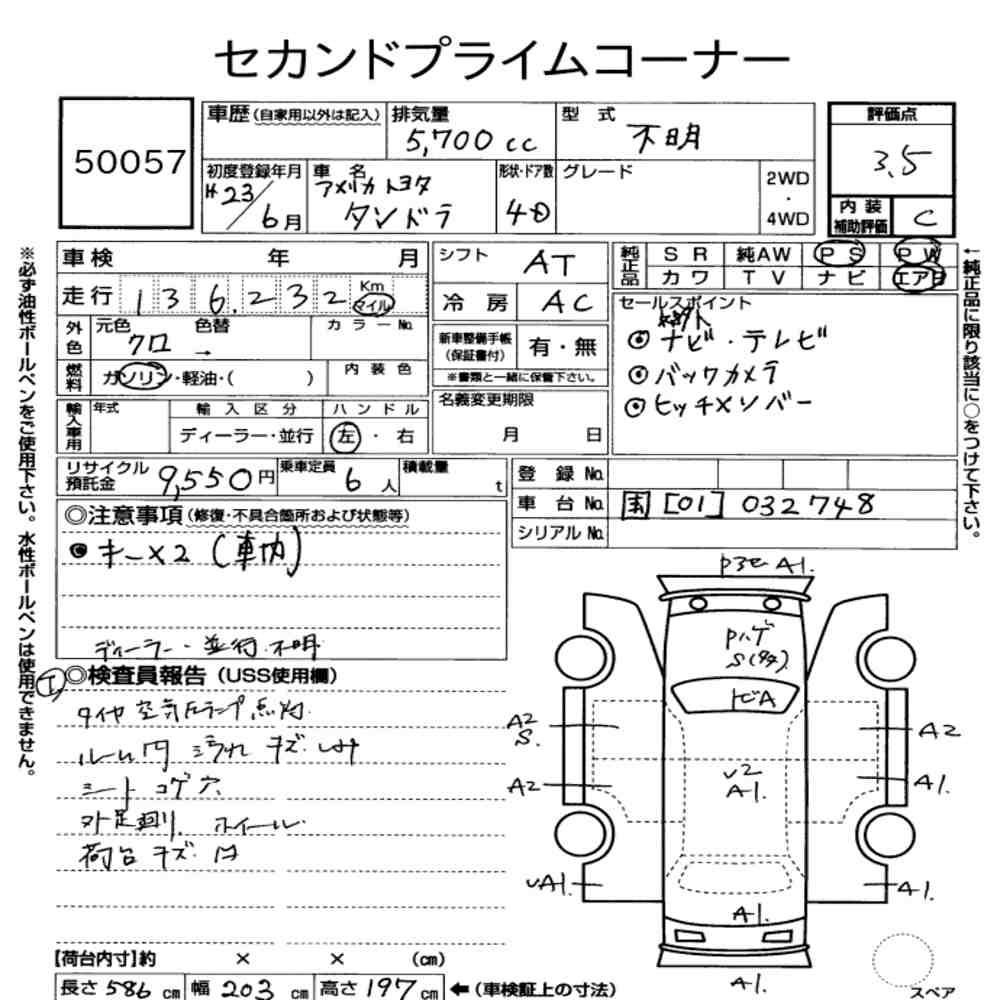 セカンドプライムコーナー
50057
車歴(自家用以外は記入)
排気量
5,700 cc
型 式
不明
評価点
3.5
初度登録年月
H23/6月
車 名
アメリカトヨタ
タンドラ
形状・ドア数
4D
グレード
2WD
・
4WD
内 装
補助評価
C
車検 年 月
シフト
AT
純正品
SR 純AW PS PW
カワ TV ナビ エアB
走行 136,232 Km マイル
冷 房 AC
セールスポイント
社外
◎ナビ・テレビ
◎バックカメラ
◎ヒッチメンバー
外色
元色 色替
クロ →
カラーNo.
新車整備手帳
(保証書付)
有・無
※書類と一緒に保管下さい。
燃料
ガソリン・軽油・( )
内 装 色
輸入車用
年式
輸 入 区 分
ディーラー・並行
ハ ン ド ル
左 ・ 右
名義変更期限
月 日
リサイクル
預託金
9,550円
乗車定員
6 人
積載量
t
登 録 No.
車 台 No. 国[01]032748
シリアル No.
◎注意事項(修復・不具合箇所および状態等)
●キー×2(車内)
ディーラー・並行 不明
◎検査員報告(USS使用欄)
タイヤ空気圧ランプ点灯
ルーム内 汚れ キズ
シート コゲ穴
外 足廻り ホイール
荷台 キズ
【荷台内寸】約 × × (cm)
長さ 586 cm 幅 203 cm 高さ 197 cm ←(車検証上の寸法)
A1.
Pハゲ
トビA
A2
S.
A2
U2
A1.
A2
A1.
UA1.
A1.
A1.
A1.
スペア
※必ず油性ボールペンをご使用下さい。水性ボールペンは使用できません。
←純正品に限り該当に○をつけて下さい。